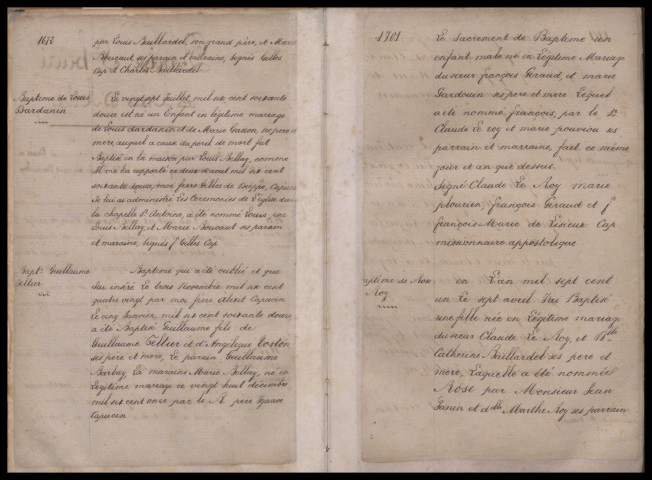 1672
par Louis Baillardel, son grand père, et Marie
ses parain et maraine, signés Gilles
Cap et Charles Baillardel
Baptême de Louis
Dardanin
Le vingt sept Juillet, mil six cent soixante
douze est né un Enfant en légitime mariage
de Louis dardanin et de Marie ses père et
mère, auquel a cause du peril de mort fut
Baptisé en la maison par Louis Nellay, comme
il me l'a rapporté ce deux d'aout mil six cent
soixante douze, moi frère Gilles de Dieppe, Capucin
Je lui ai administré Les Cérémonies de L'église dans
la chapelle St Antoine, a été nommé Louis, par
Louis Nellay et Marie ses parain
et maraine, signés f. Gilles Cap
Bapt. Guillaume
Tellier
Baptême qui a été oublié et que
J'ai inséré Le trois Décembre mil six cent
quatre vingt par moi frère Capucin
Le cinq Janvier, mil six cent soixante douze
a été Baptisé Guillaume fils de
Guillaume Tellier et d'Angélique Coston
ses père et mère, Le parain Guillaume
Barbay La maraine Marie Nellay, né en
Légitime mariage le vingt huit décembre
mil six cent onze par le R. père
Capucin
1701
Le Sacrement de Baptême a un
enfant male né en Légitime Mariage
du sieur françois Giraud, et marie
Gardouin ses père et mère Lequel
a été nommé françois, par le Sr
Claude Le Roy et marie pouviou ses
parrain et marraine, fait ce même
jour et an que dessus.
Signé Claude Le Roy marie
plourieu, françois Giraud et f
françois Marie de Lisieux Cap
missionnaire appostolique
Baptême de Rose
Roy
en L'an mil sept cent
un Le sept avril J'ai Baptisé
une fille née en Légitime mariage
du sieur Claude Le Roy, et Dlle
Catherine Baillardel ses père et
mère, Laquelle a été nommée
Rose par Monsieur Jean
Janin et dlle Marthe Roy ses parrain